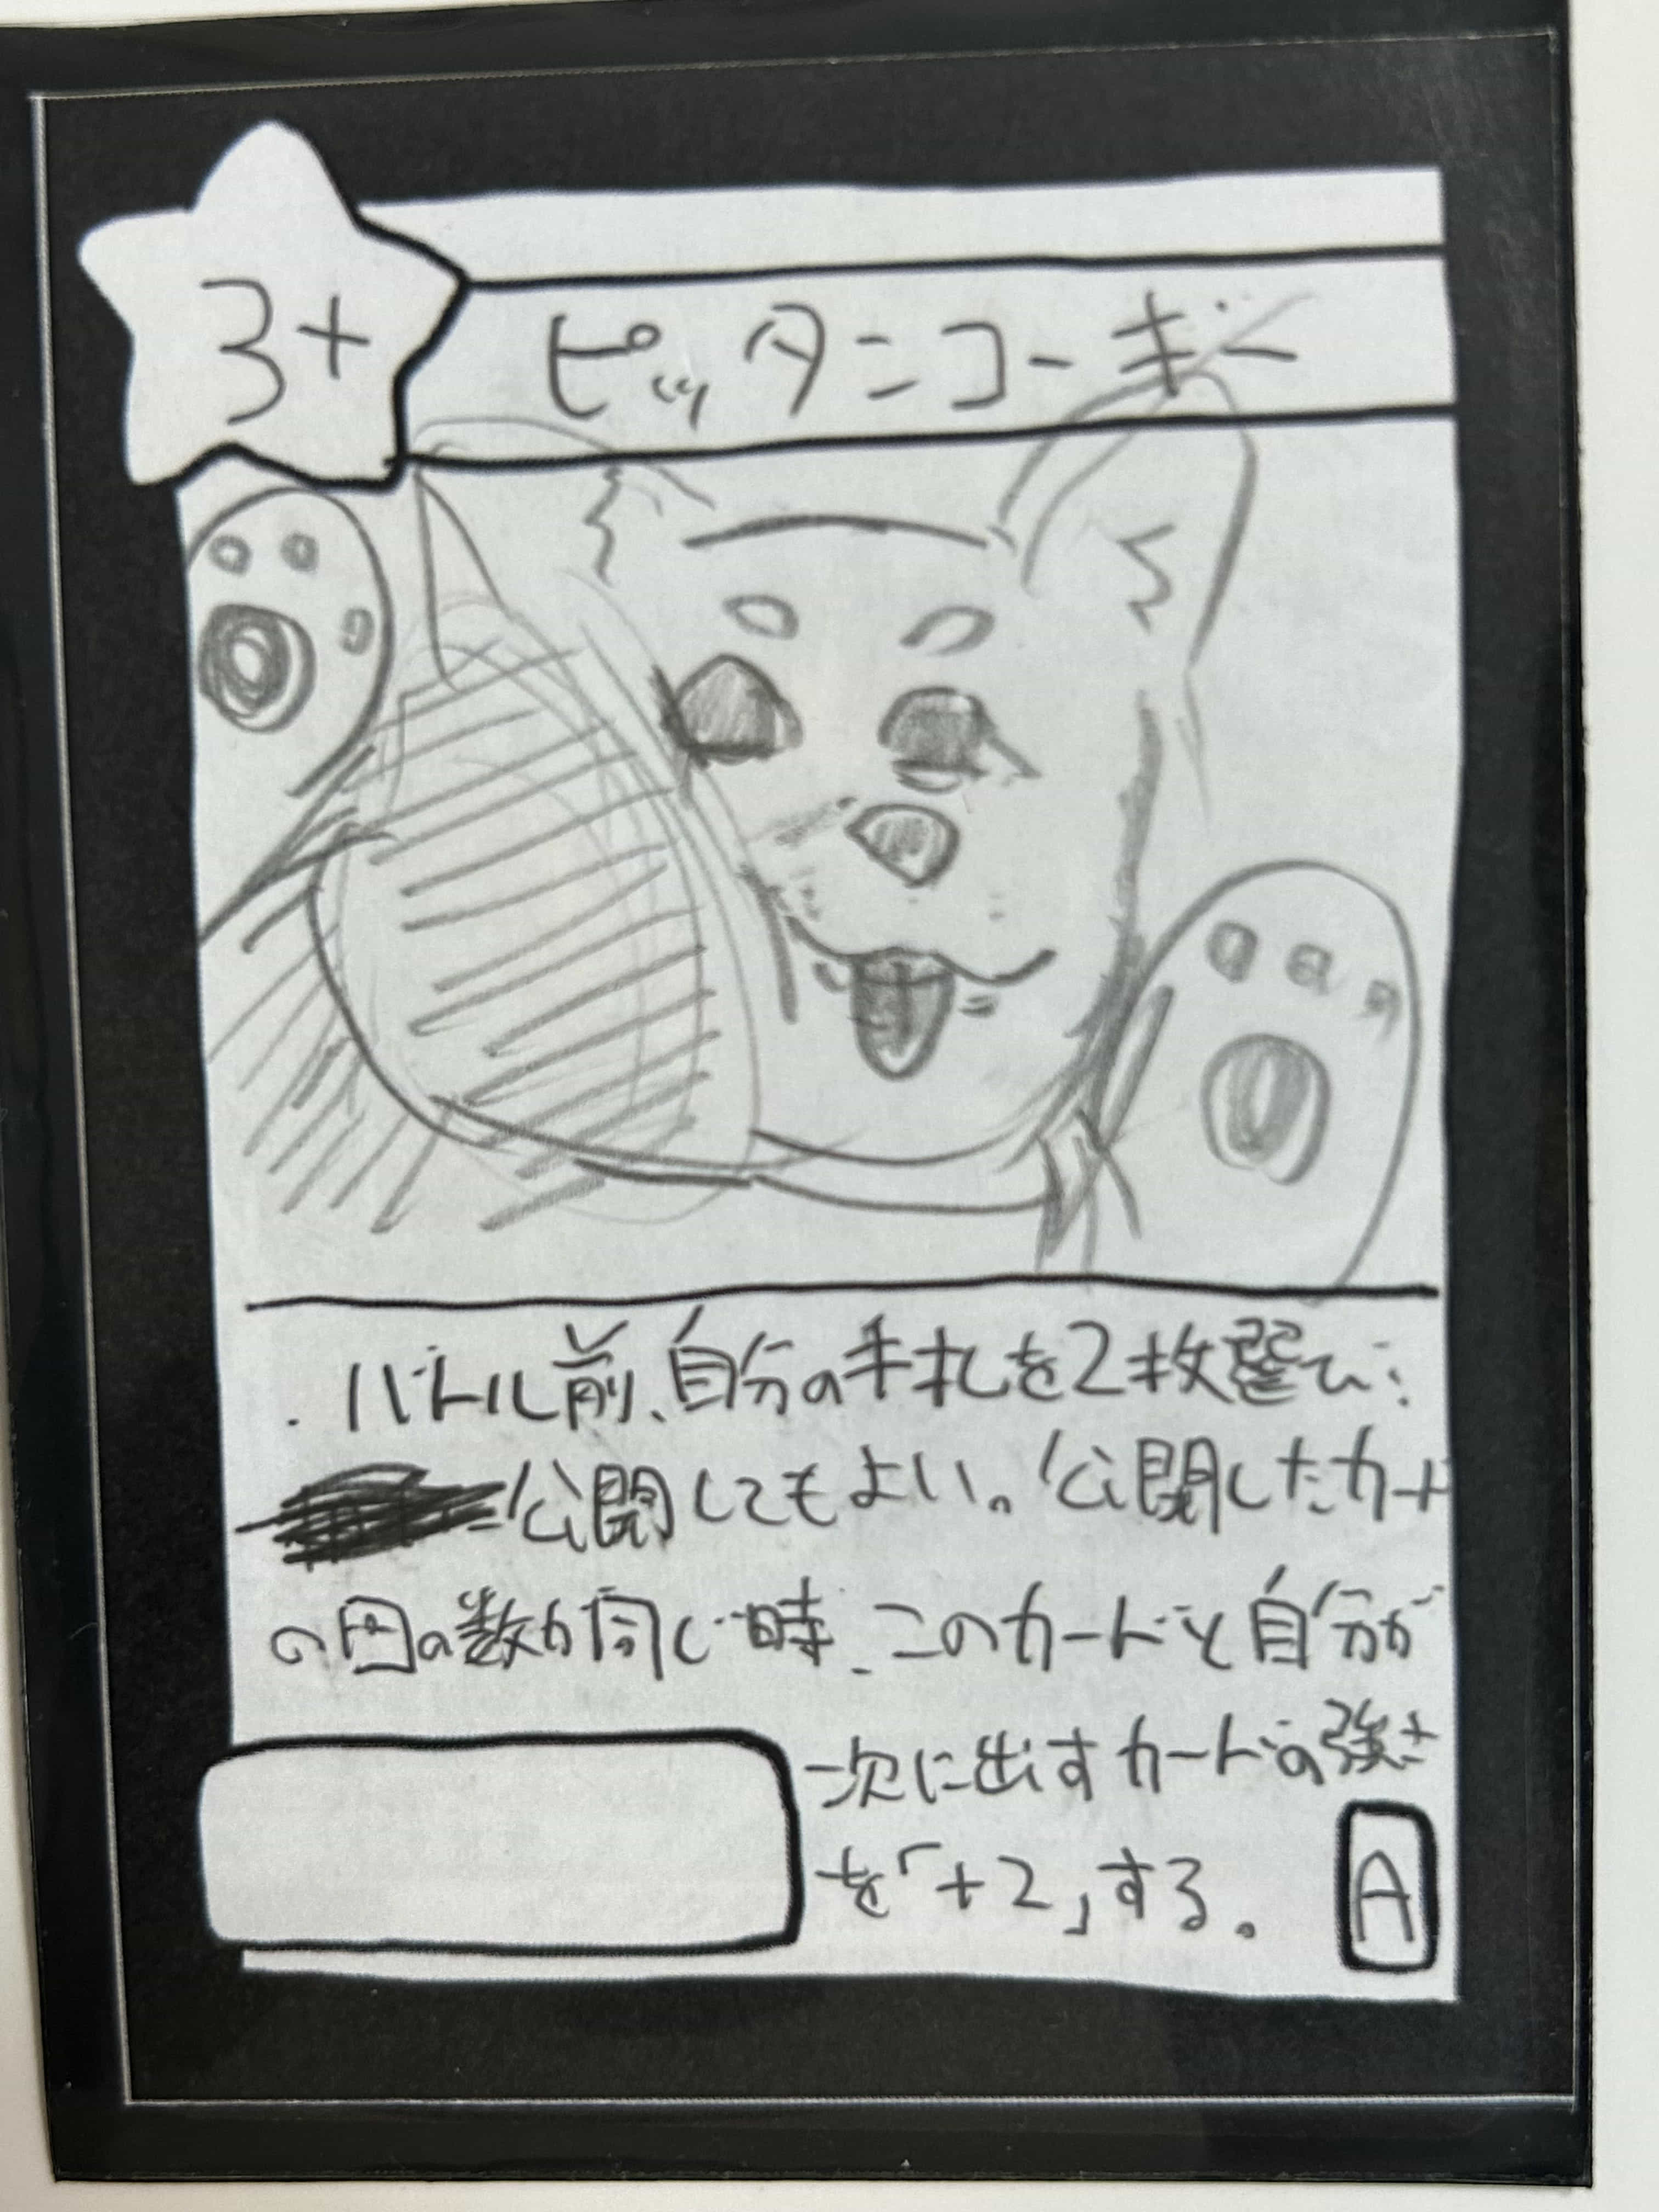 3+
ピッタンコーギー
・バトル前、自分の手札を2枚選び
公開してもよい。公開したカード
の目の数が同じ時、このカードと自分が
次に出すカードの強さ
を「+2」する。
A